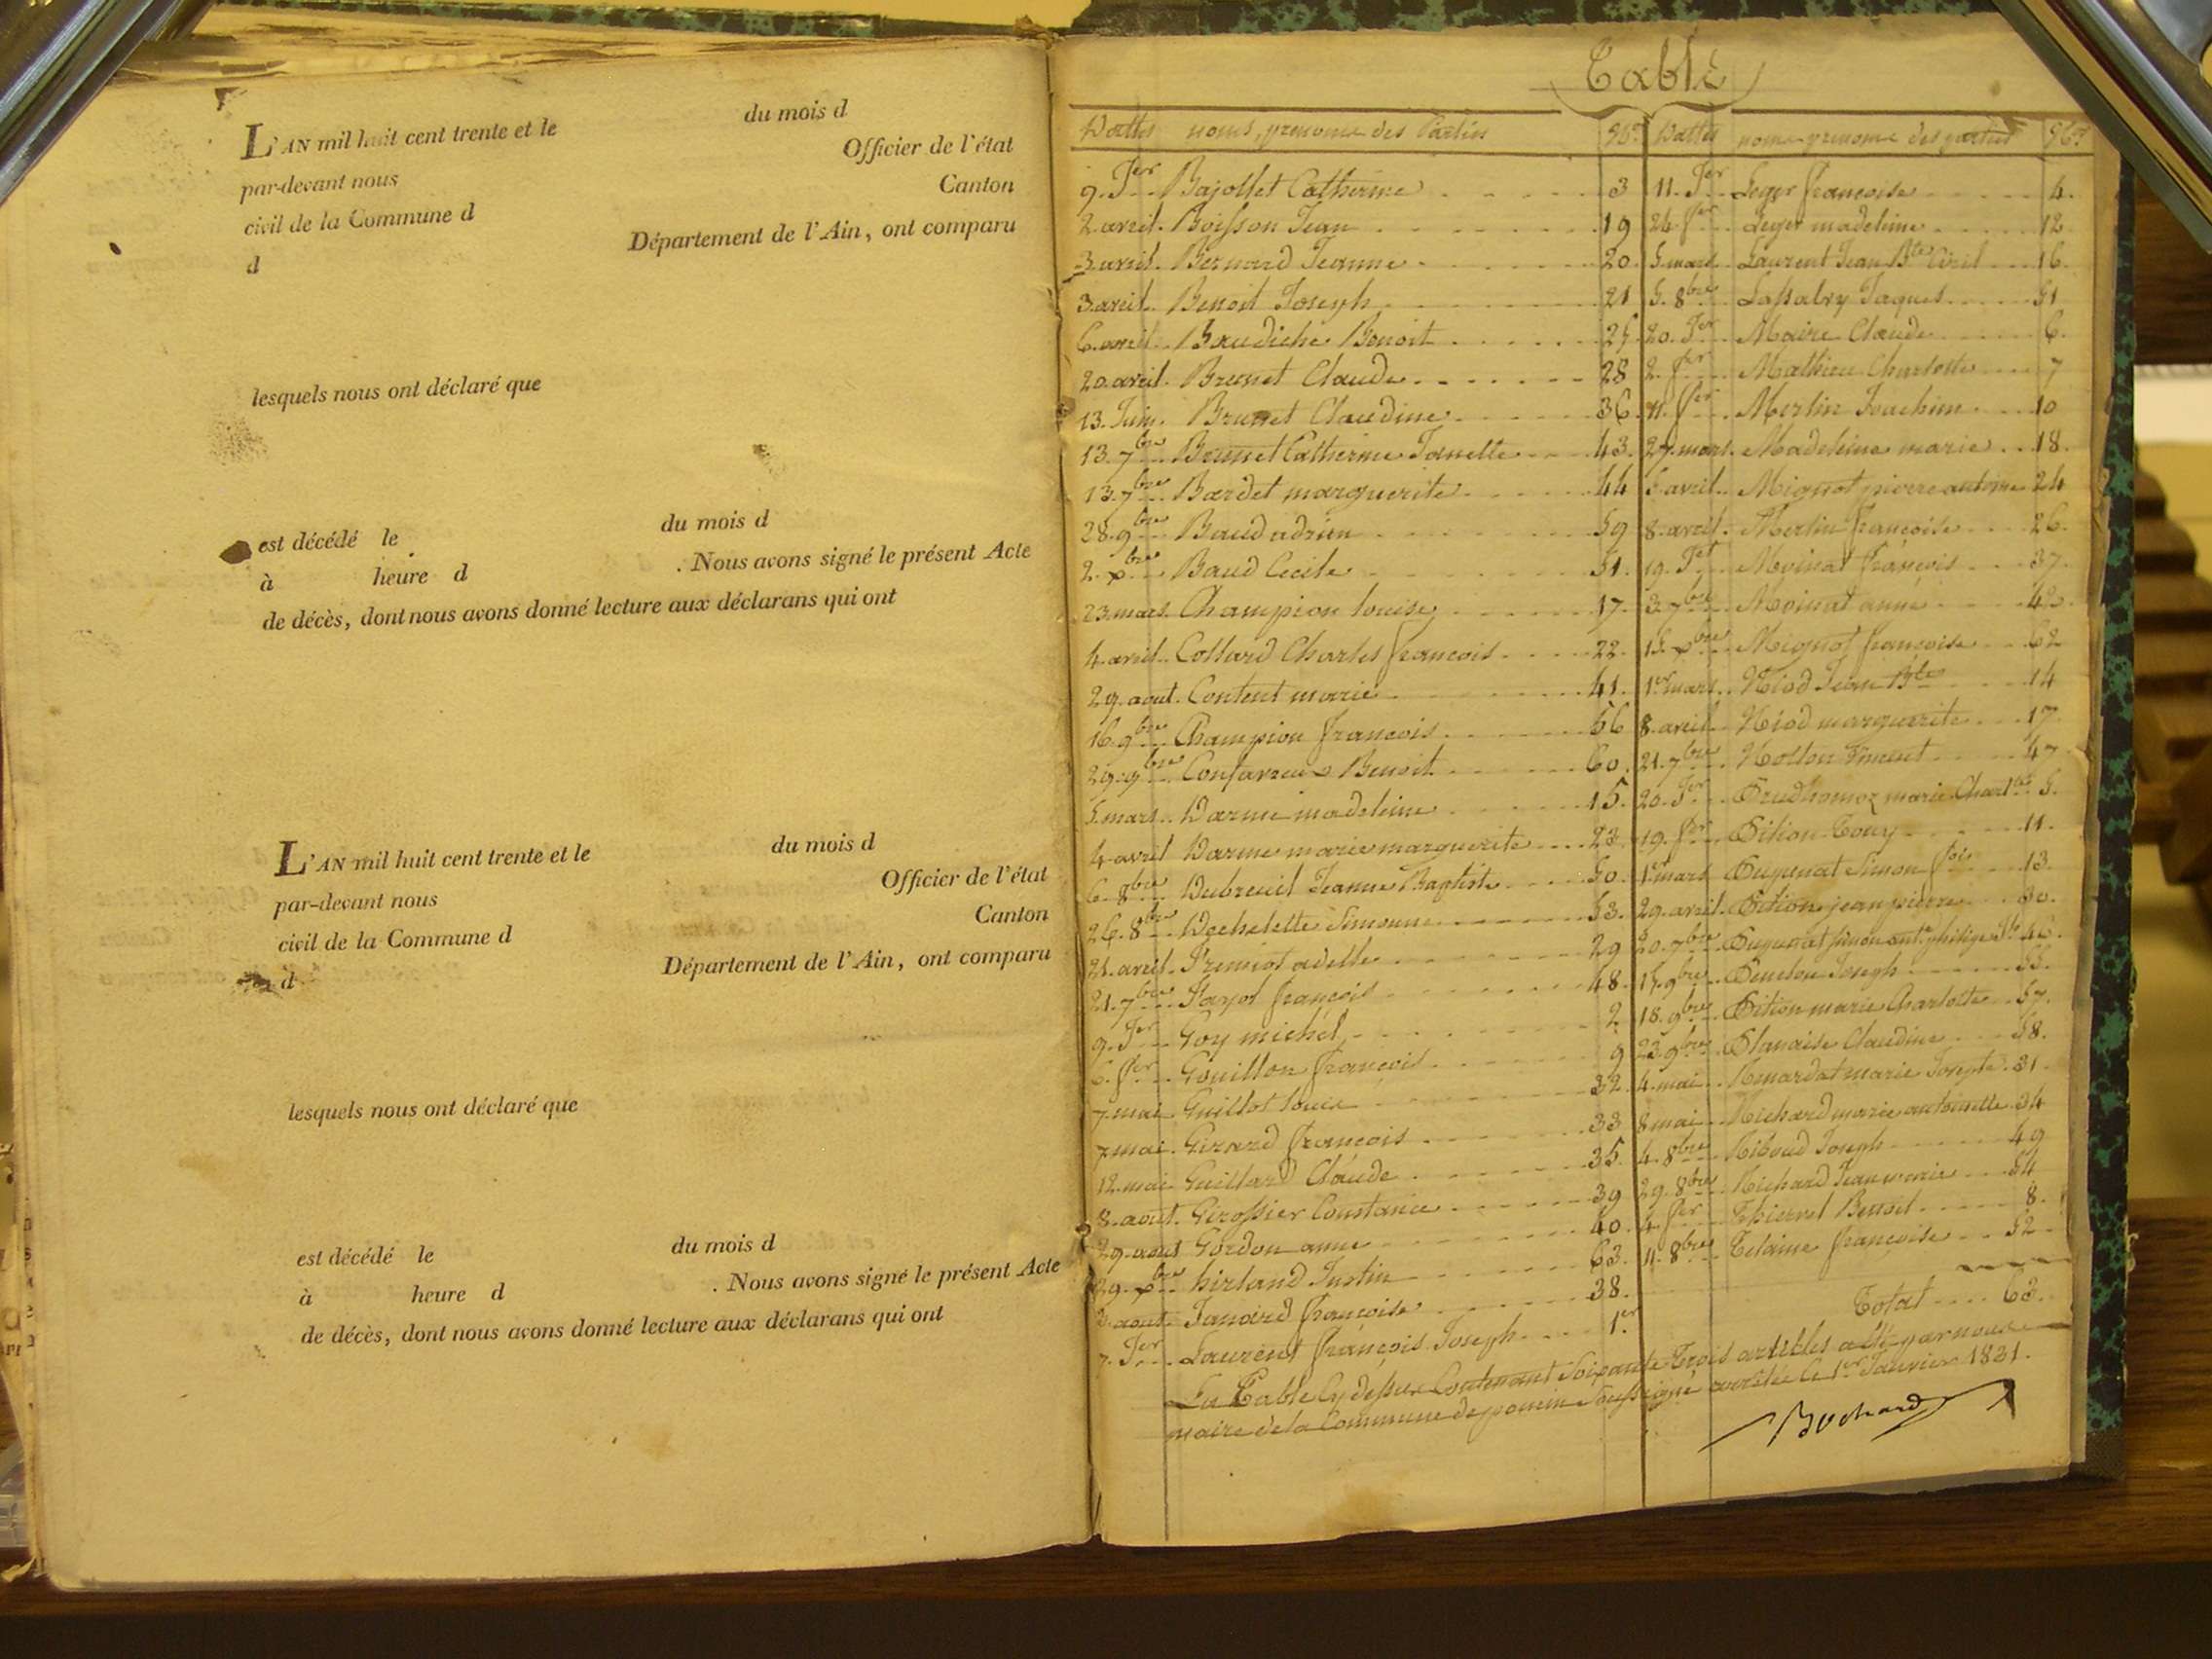 L'AN mil huit cent trente et le du mois d
par-devant nous Officier de l'état
civil de la Commune d Canton
d Département de l'Ain, ont comparu
lesquels nous ont déclaré que
est décédé le du mois d
à heure d . Nous avons signé le présent Acte
de décès, dont nous avons donné lecture aux déclarans qui ont
L'AN mil huit cent trente et le du mois d
par-devant nous Officier de l'état
civil de la Commune d Canton
d Département de l'Ain, ont comparu
lesquels nous ont déclaré que
est décédé le du mois d
à heure d . Nous avons signé le présent Acte
de décès, dont nous avons donné lecture aux déclarans qui ont
Table
Dattes noms, prenoms des Parties
9. Jer Bajollet Catherine 3
2. avril. Boisson Jean 19
3. avril. Bernard Jeanne 20
3. avril. Benoit Joseph 21
6. avril. Baudiche Benoit 25
20. avril. Brunet Claude 28
13. Juin. Brunet Claudine 36
13. 7bre Brunet Catherine Janette 43
13. 7bre Bardet marguerite 44
28. 9bre Baud adrien 59
2. xbre Baud Cecile
23. mars. Champion louise 17
4. avril. Collard Charles francois 22
29. aout. Content marie 41
16. 9bre Champion francois 56
29. 9bre Benoit 60
5. mars. Darme madeleine 15
4. avril Darme marie marguerite 23
6. 8bre Dubreuil Jeanne Baptiste 50
26. 8bre Dechelette Simonne 53
21. avril. adelle 29
21. 7bre Fayot françois 48
9. Jer Goy michel 2
6. fer Gouillon françois 9
7. mai Guillot louis 32
7. mai. Girard francois 33
12. mai Guillard Claude 35
8. aout. Grossier Constance 39
29. aout Gordon anne 40
29. xbre hirland Justin 63
2. aout. Janard francoise 38
7. Jer Laurent François Joseph 1er
Dattes noms prenoms des parties
11. Jer Leger francoise 4
24. fer Leger madeleine 12
5. mars Laurent Jean Bte 16
5. 8bre Lassabry Jaques 51
20. Jer Maire Claude 6
2. fer Mathieu Charlotte 7
11. fer Merlin Joachim 10
27. mars. Madeleine marie 18
5 avril. Mignot pierre antoine 24
8. avril. Merlin françoise 26
19. Jet Moinat françois 37
3. 7bre Moinat anne 42
15. xbre Mignot françoise 62
1er mars. Niod Jean Bte 14
8. avril Niod marguerite
21. 7bre Nollon Vincent 47
20. Jer Prudhomoz marie Charlte 5
19. fer Pition Touy 11
1er mars Pugenat Simon fois 13
29. avril. Pition jean pierre 30
20. 7bre Pugenat simon ante philipe 46
15. 9bre Joseph 55
18. 9bre Pition marie Charlotte 57
23. 9bre Planaise Claudine 58
4. mai marie Josephte 31
8 mai Richard marie antoinette 34
4. 8bre Riboud Joseph 49
29. 8bre Richard Jeanmarie 54
4. fer Thievent Benoit 8
11. 8bre Telaime francoise 52
Total 63
La Table Cy dessus Contenant Soixante Trois articles a été par nous
maire de la Commune de poncin Soussigné arretée Le 1er Janvier 1831.
Bochard